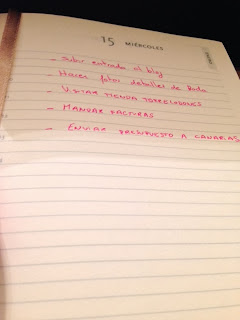 15 MIÉRCOLES
- Subir entrada al blog
- Hacer fotos detalles de Boda
- VISITAR TIENDA TORRELODONES
- MANDAR FACTURAS
- ENVIAR PRESUPUESTO A CANARIAS